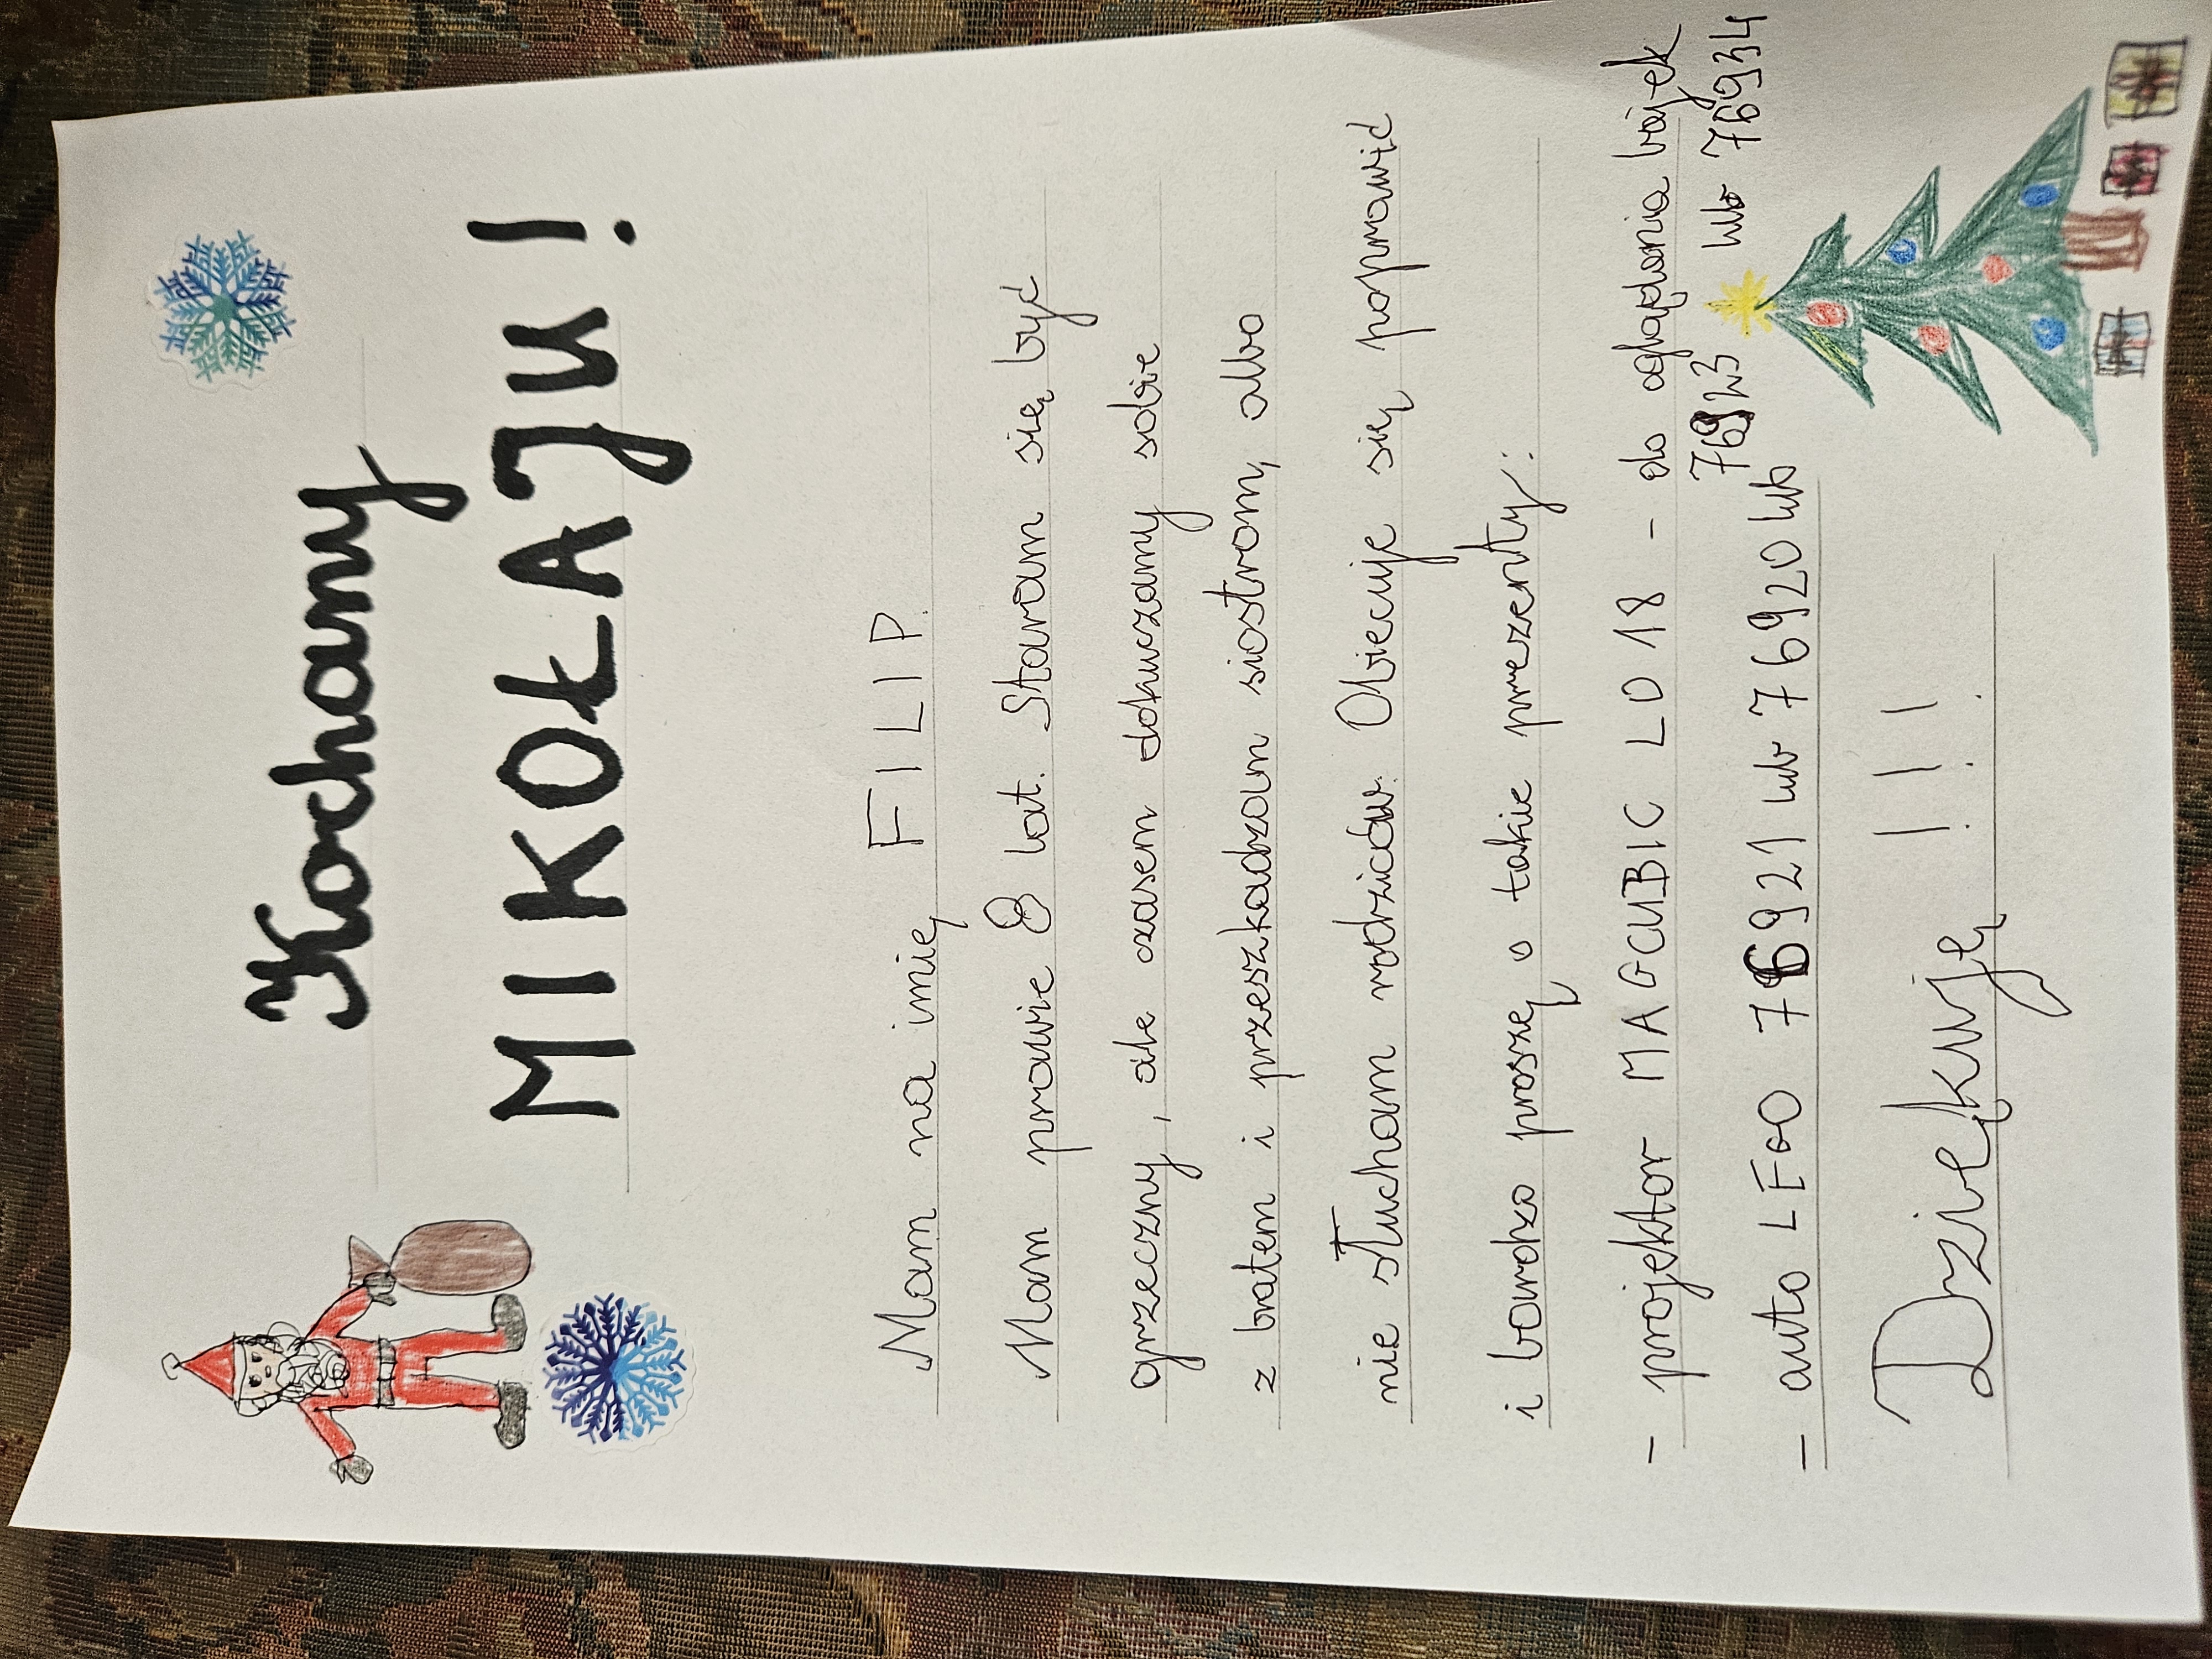 Kochany
MIKOŁAJU!
Mam na imię FILIP.
Mam prawie 8 lat. Staram się być
grzeczny, ale czasem dokuczamy sobie
z bratem i przeszkadzam siostrom, albo
nie słucham rodziców. Obiecuje się poprawić
i bardzo proszę o takie prezenty:
- projektor MAGCUBIC LO 18 - do oglądania bajek
76923 lub 76934
- auto LEGO 76921 lub 76920 lub
Dziękuję !!!